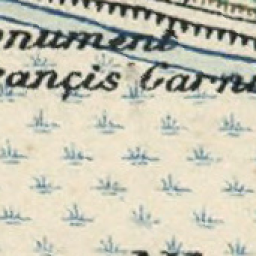 onument
rançis Garni